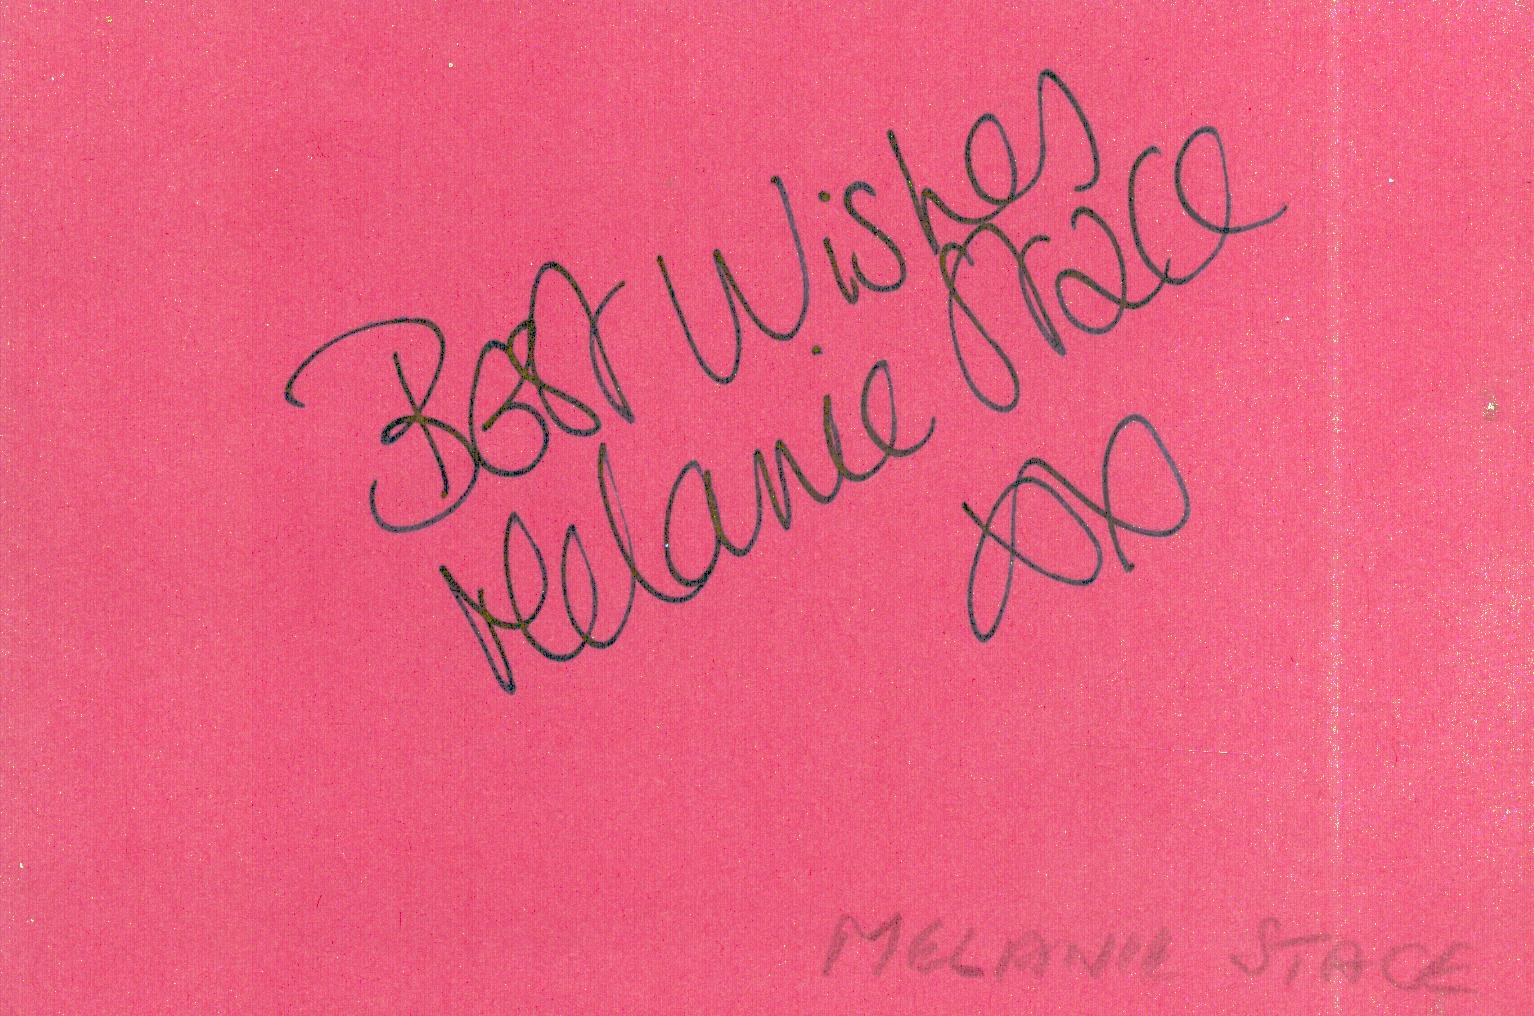 Best Wishes
Melanie Stace
xx
MELANIE STACE